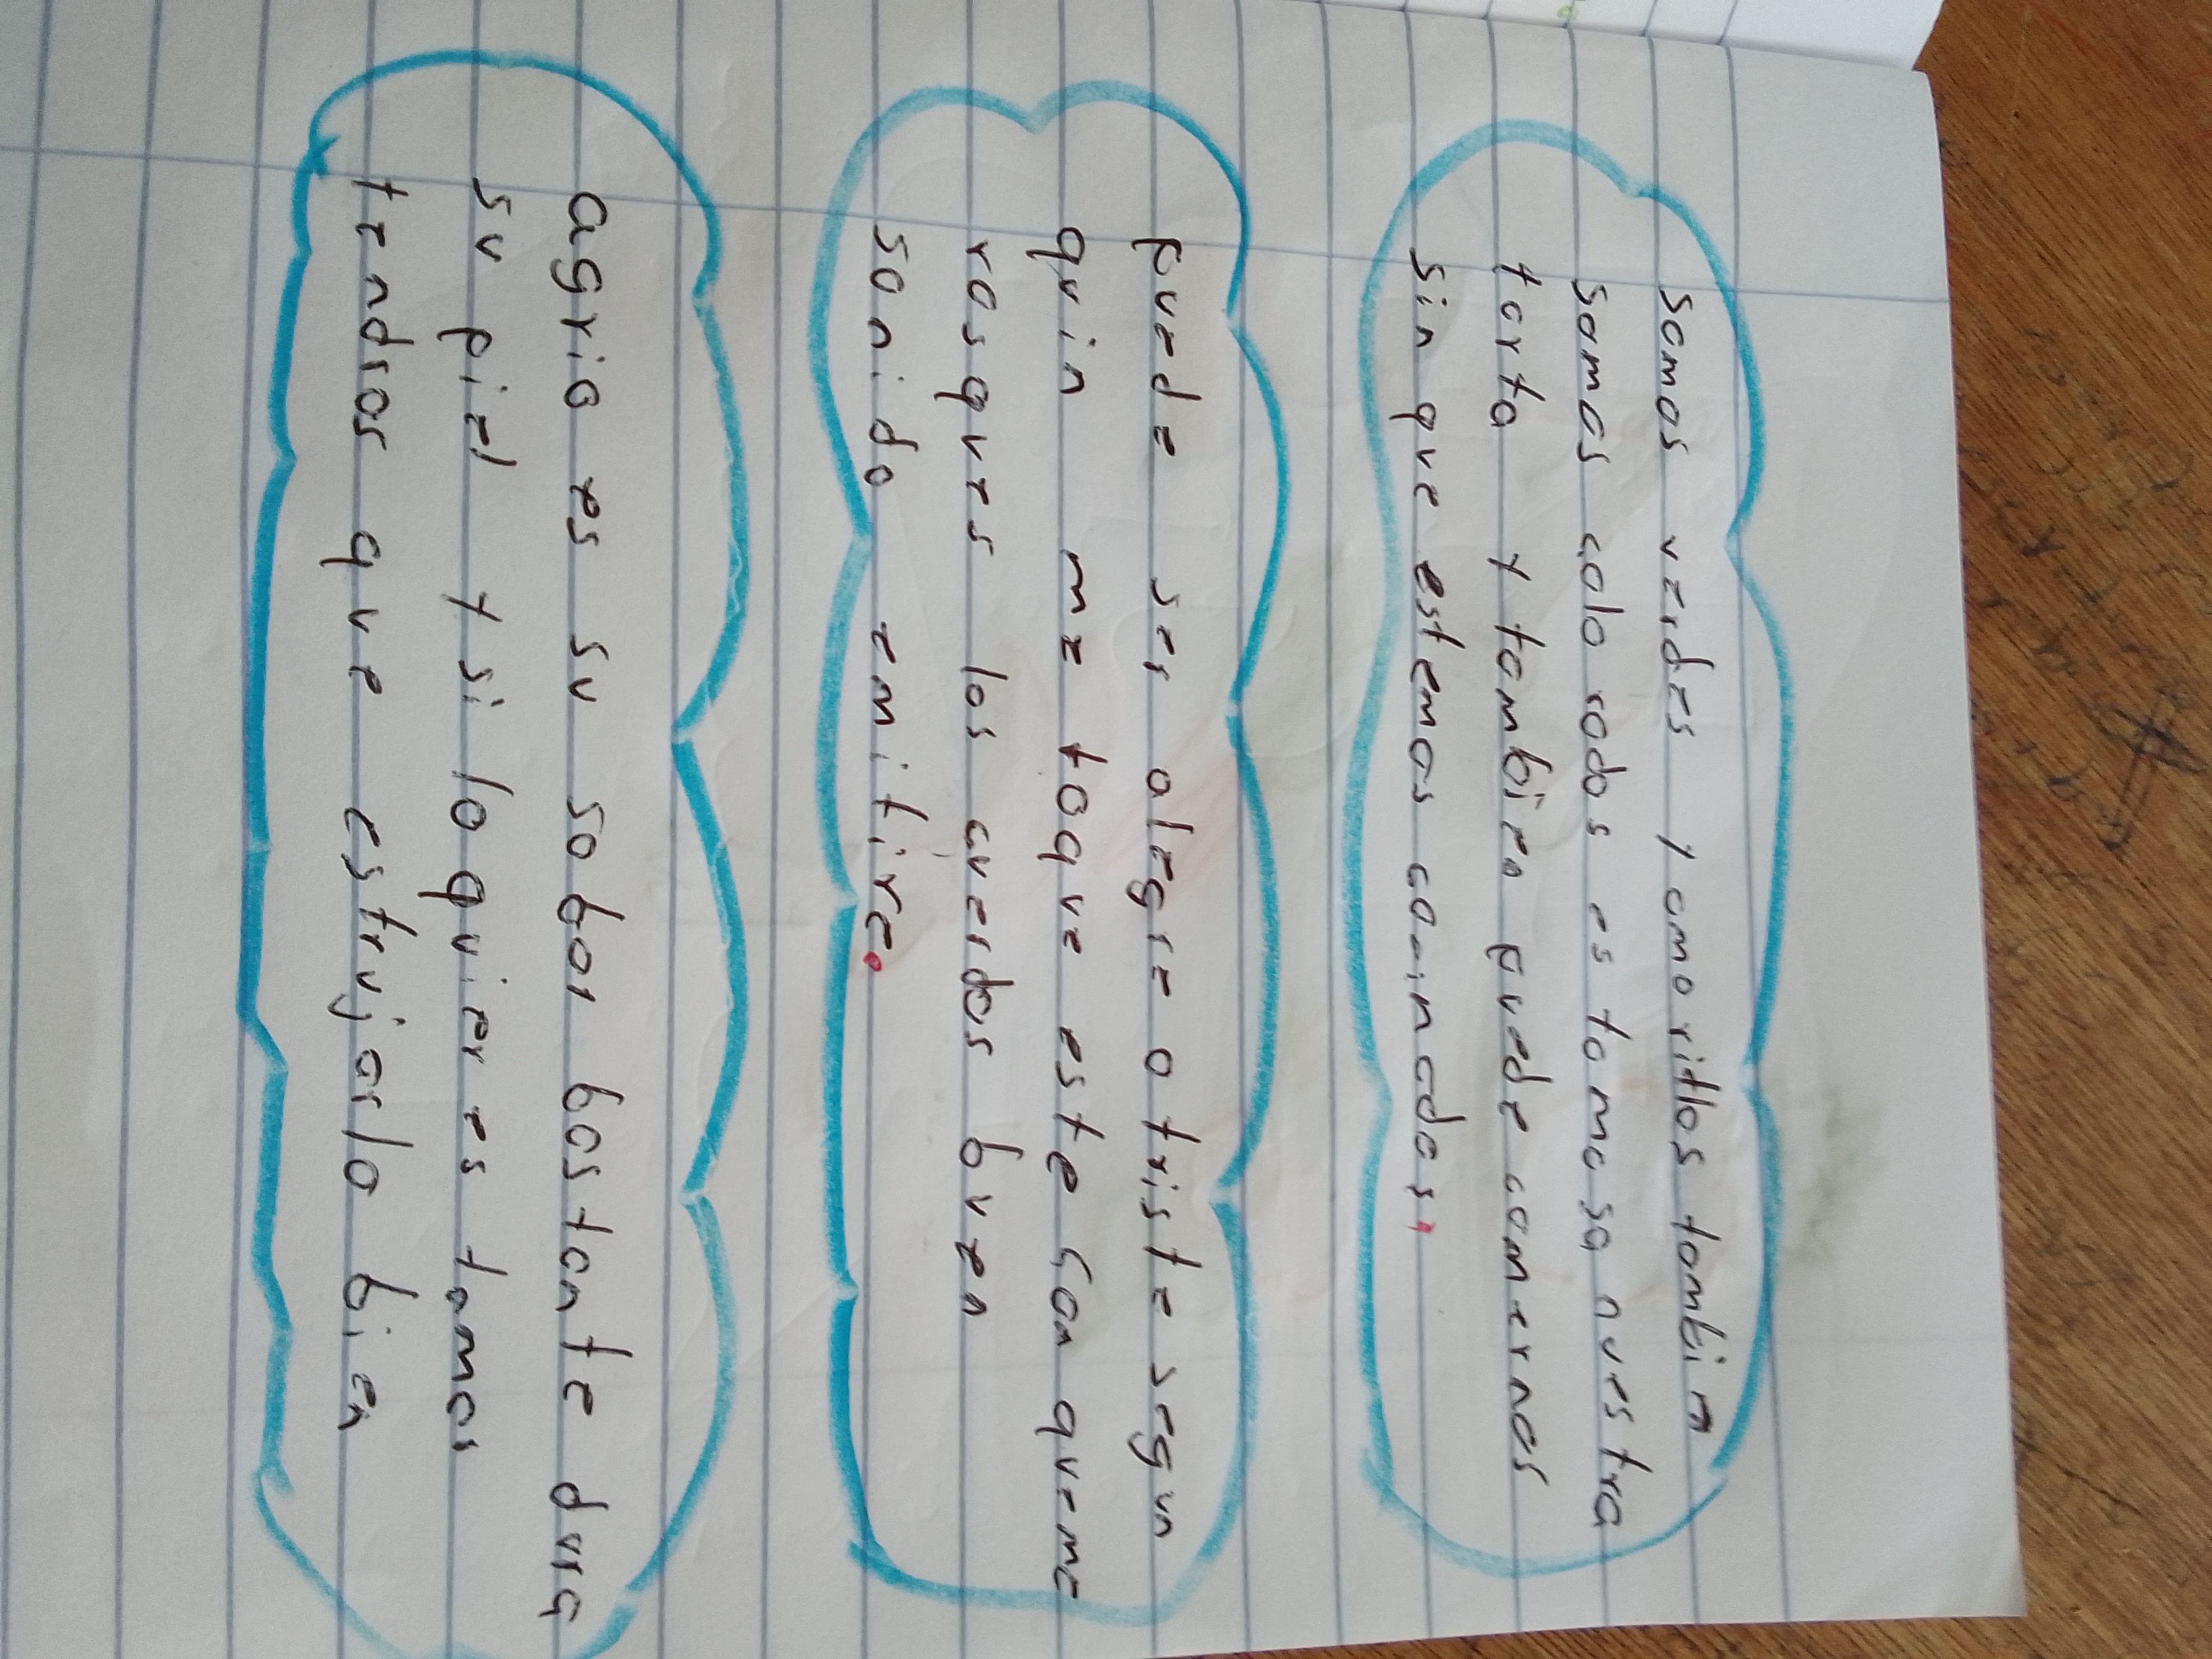 somos verdes y amarillos tambin
somos colo rados es ta mosa nuestra
torta y tombien puede comernos
sin que estemos cocinados,
puede ser alegre o triste segun
quin me toque este con queme
rosques los cuerdos buen
sonido emitire.
agrio es su sabor bastante dura
su piel y si lo quieres tomar
tendras que estrujarlo bien